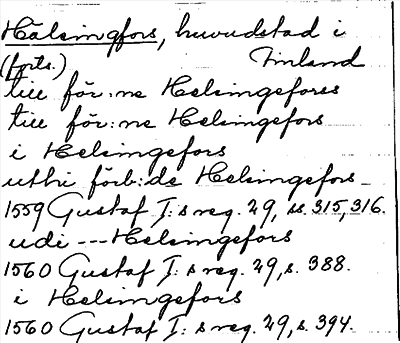 Hälsingfors, huvudstad i
(forts.) Finland
till för:ne Helsingeforss
till för:ne Helsingefors
i Helsingefors
uthi förb:de Helsingefors
1559 Gustaf I:s reg. 29, ss. 315, 316.
udi --- Helsingefors
1560 Gustaf I:s reg. 29, s. 388.
i Helsingefors
1560 Gustaf I:s reg. 29, s. 394.